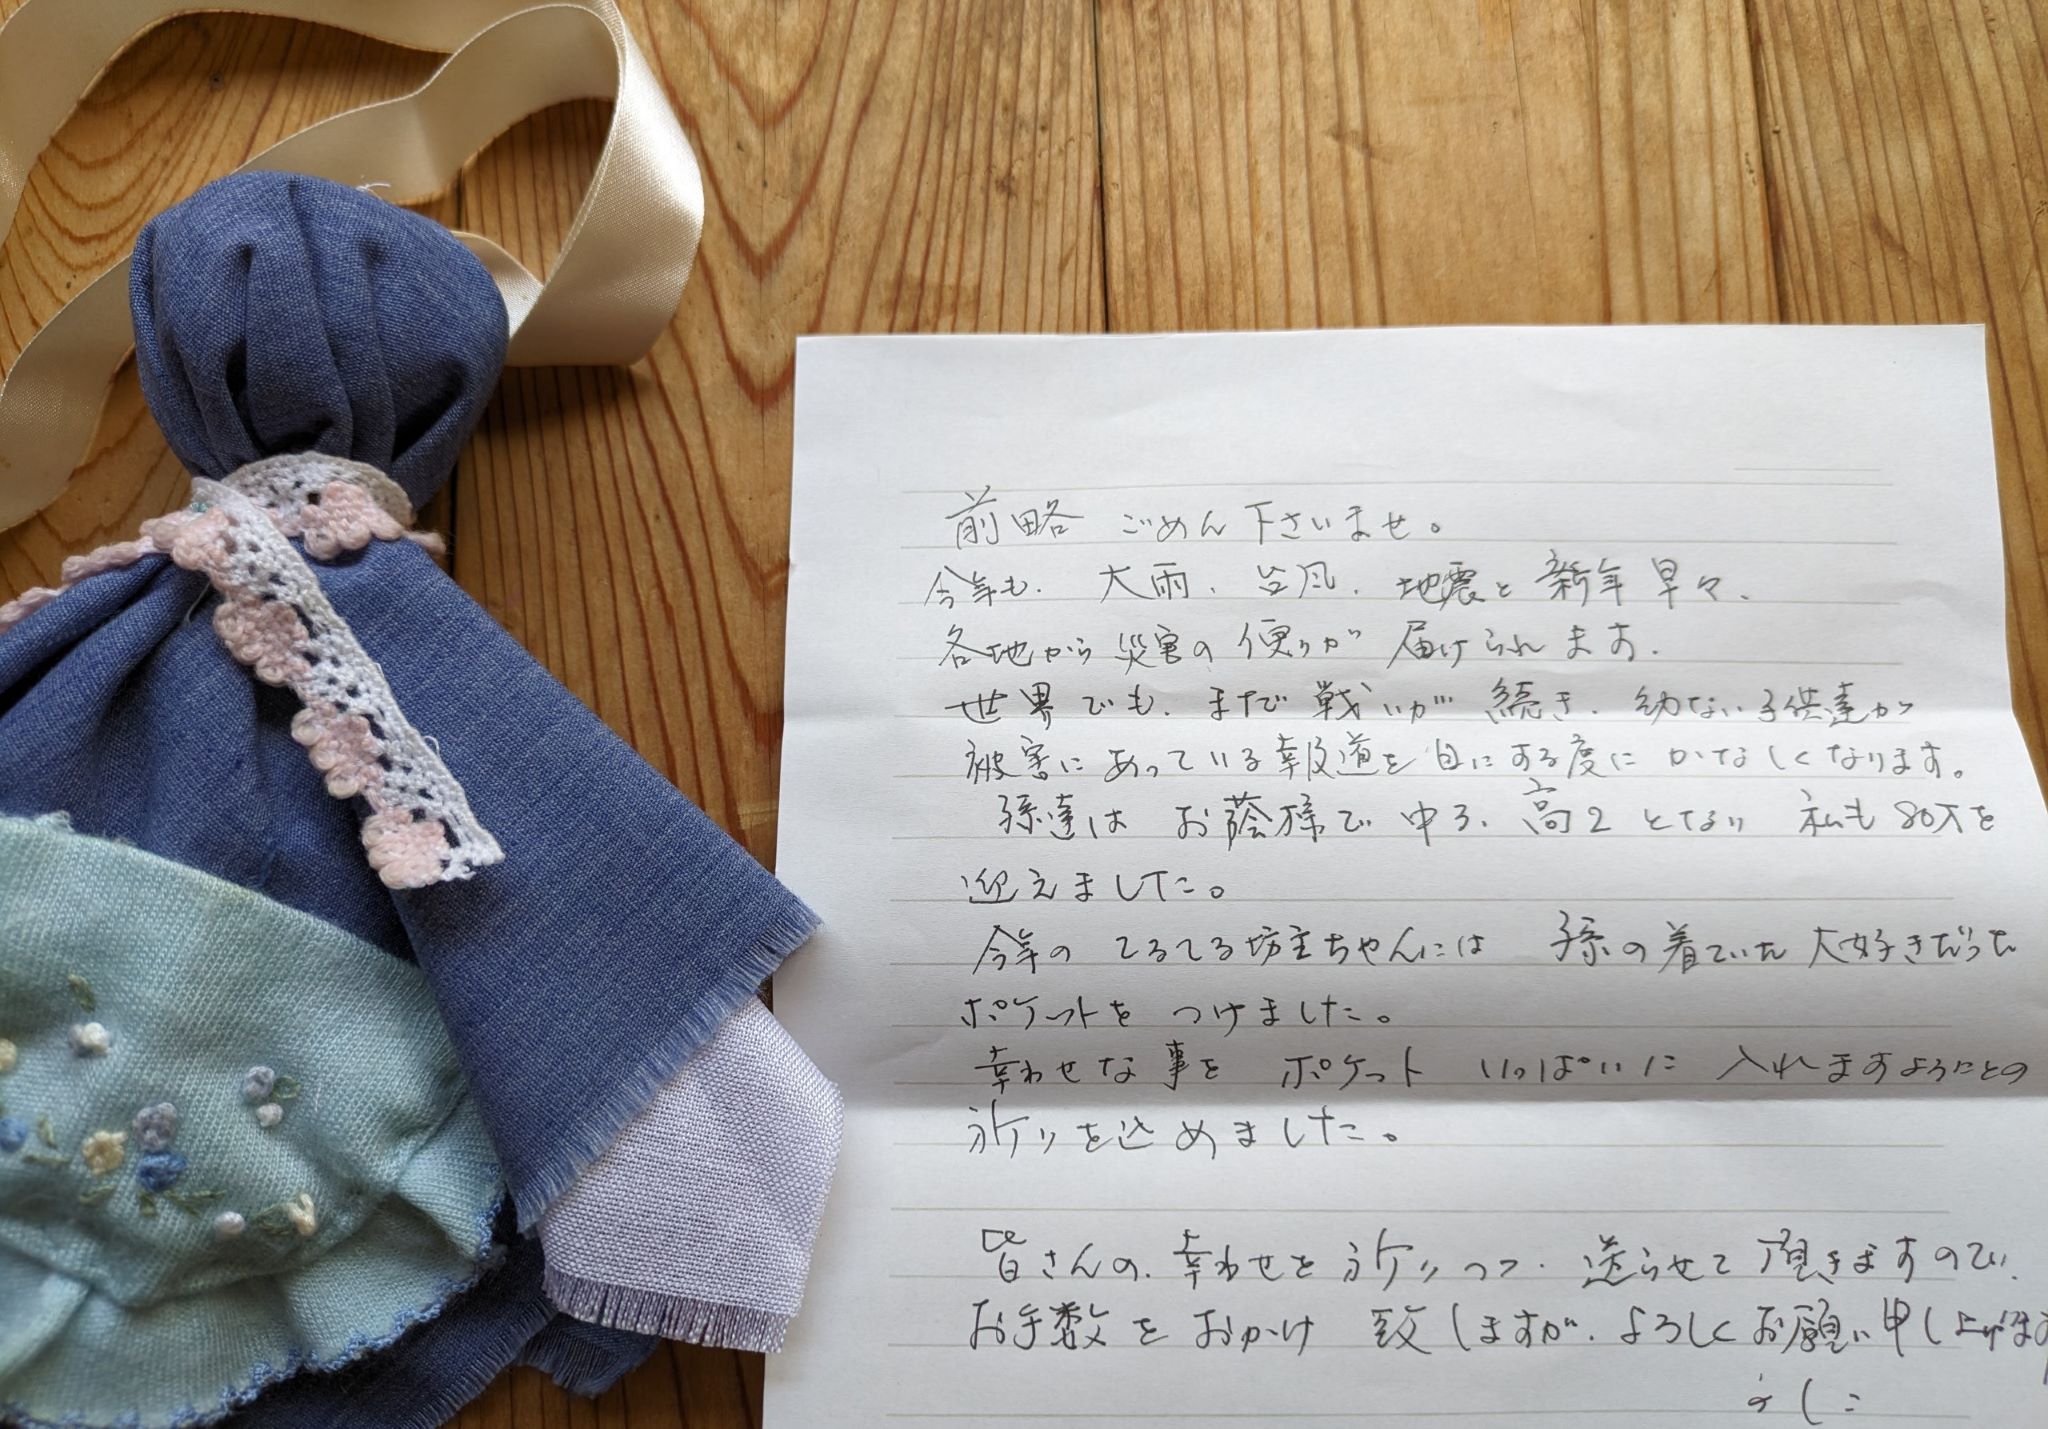 前略 ごめん下さいませ。
今年も、大雨、台風、地震と新年早々、
各地から災害の便りが届けられます。
世界でも、まだ戦いが続き、幼ない子供達が
被害にあっている報道を目にする度にかなしくなります。
孫達はお蔭様で中3、高2となり私も80才を
迎えました。
今年のてるてる坊主ちゃんには孫の着ていた大好きだった
ポケットをつけました。
幸わせな事をポケットいっぱいに入れますようにとの
祈りを込めました。
皆さんの、幸わせを祈りつつ、送らせて頂きますので、
お手数をおかけ致しますが、よろしくお願い申し上げます